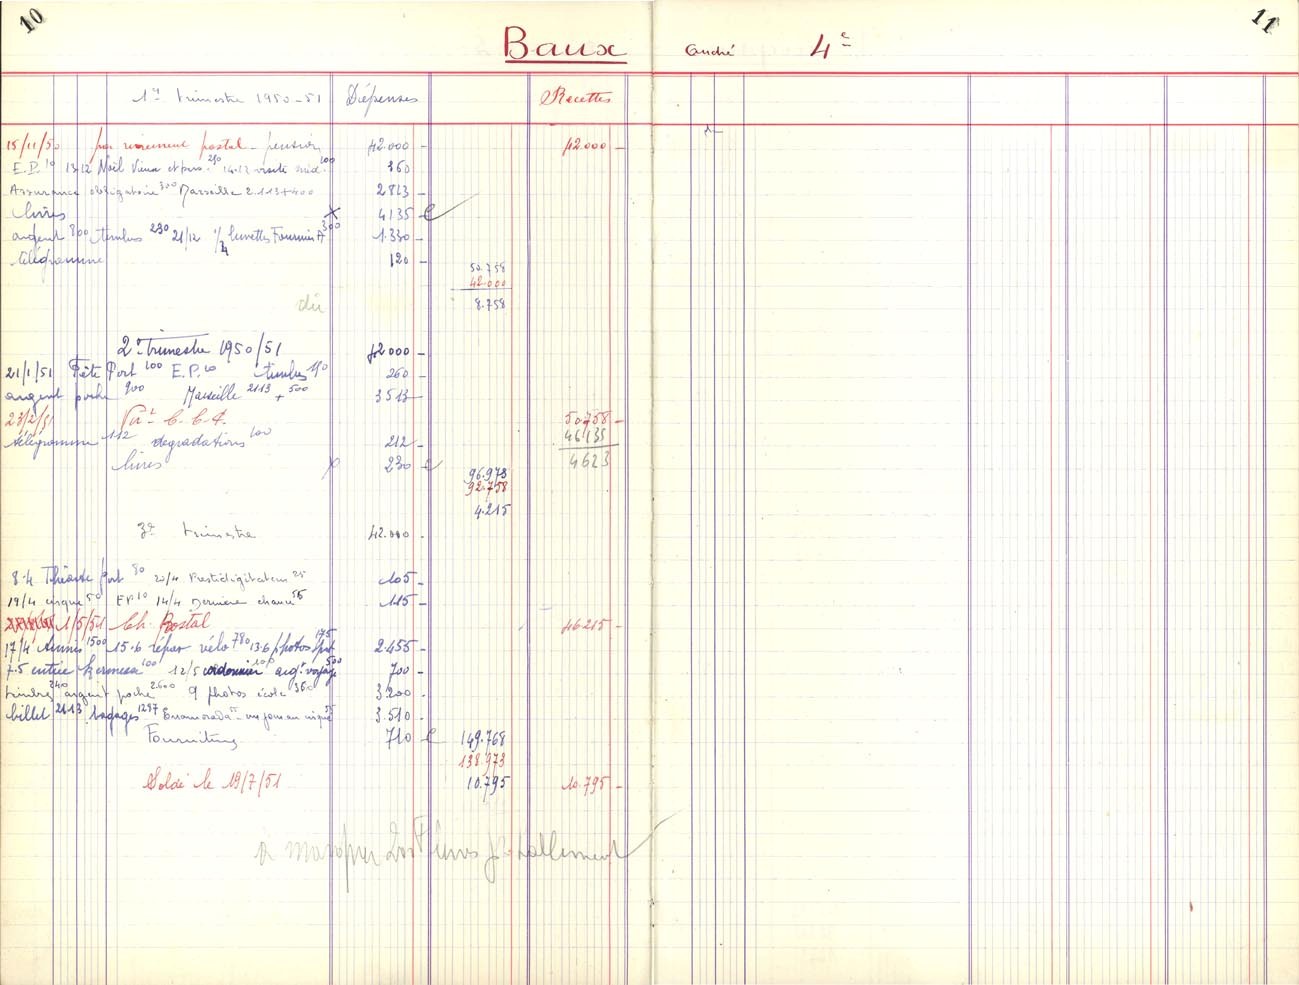 10
11
Baux André 4e
1er trimestre 1950-51 Dépenses Recettes
15/11/50 par virement postal - pension 42.000 - 42.000 -
E.P. 10 13.12 Noël Vieux et puv. 210 14.12 visite méd. 100 360
Assurance obligatoire 300 Marseille 2.113+400 2813 -
livres x 4135 -
argent 800 timbres 230 21/12 1/4 lunettes Fournier A 300 1.330 -
télégramme 120 -
50.758
42.000
dû 8.758
2e Trimestre 1950/51 42000 -
21/1/51 Fête Port 100 E.P. 10 timbres 150 260 -
argent poche 900 Marseille 2113 + 500 3513
23/2/51 Par C.C.P. 50.758 -
46135
télégramme 112 dégradations 100 212 -
4623
livres x 230
96.973
92.758
4.215
3e trimestre 42.000 .
8.4 Théâtre port 80 20/4 Prestidigitateur 25 105 -
19/4 cirque 50 EP 10 14/4 Dernière chance 55 115 -
1/5/51 Ch. Postal 46215 -
17/4 Annis 1500 15.6 répar vélo 780 13.6 photos 175 2.455 -
7.5 entrée kermesse 100 12/5 cordonnier 100 arg. voyage 500 700 -
timbres 240 argent poche 2600 9 photos école 360 3.200 .
billet 2113 bagages 1297 3.510 .
Fournitures 710 149.768
138.973
Soldé le 19/7/51 10.795 10.795 -